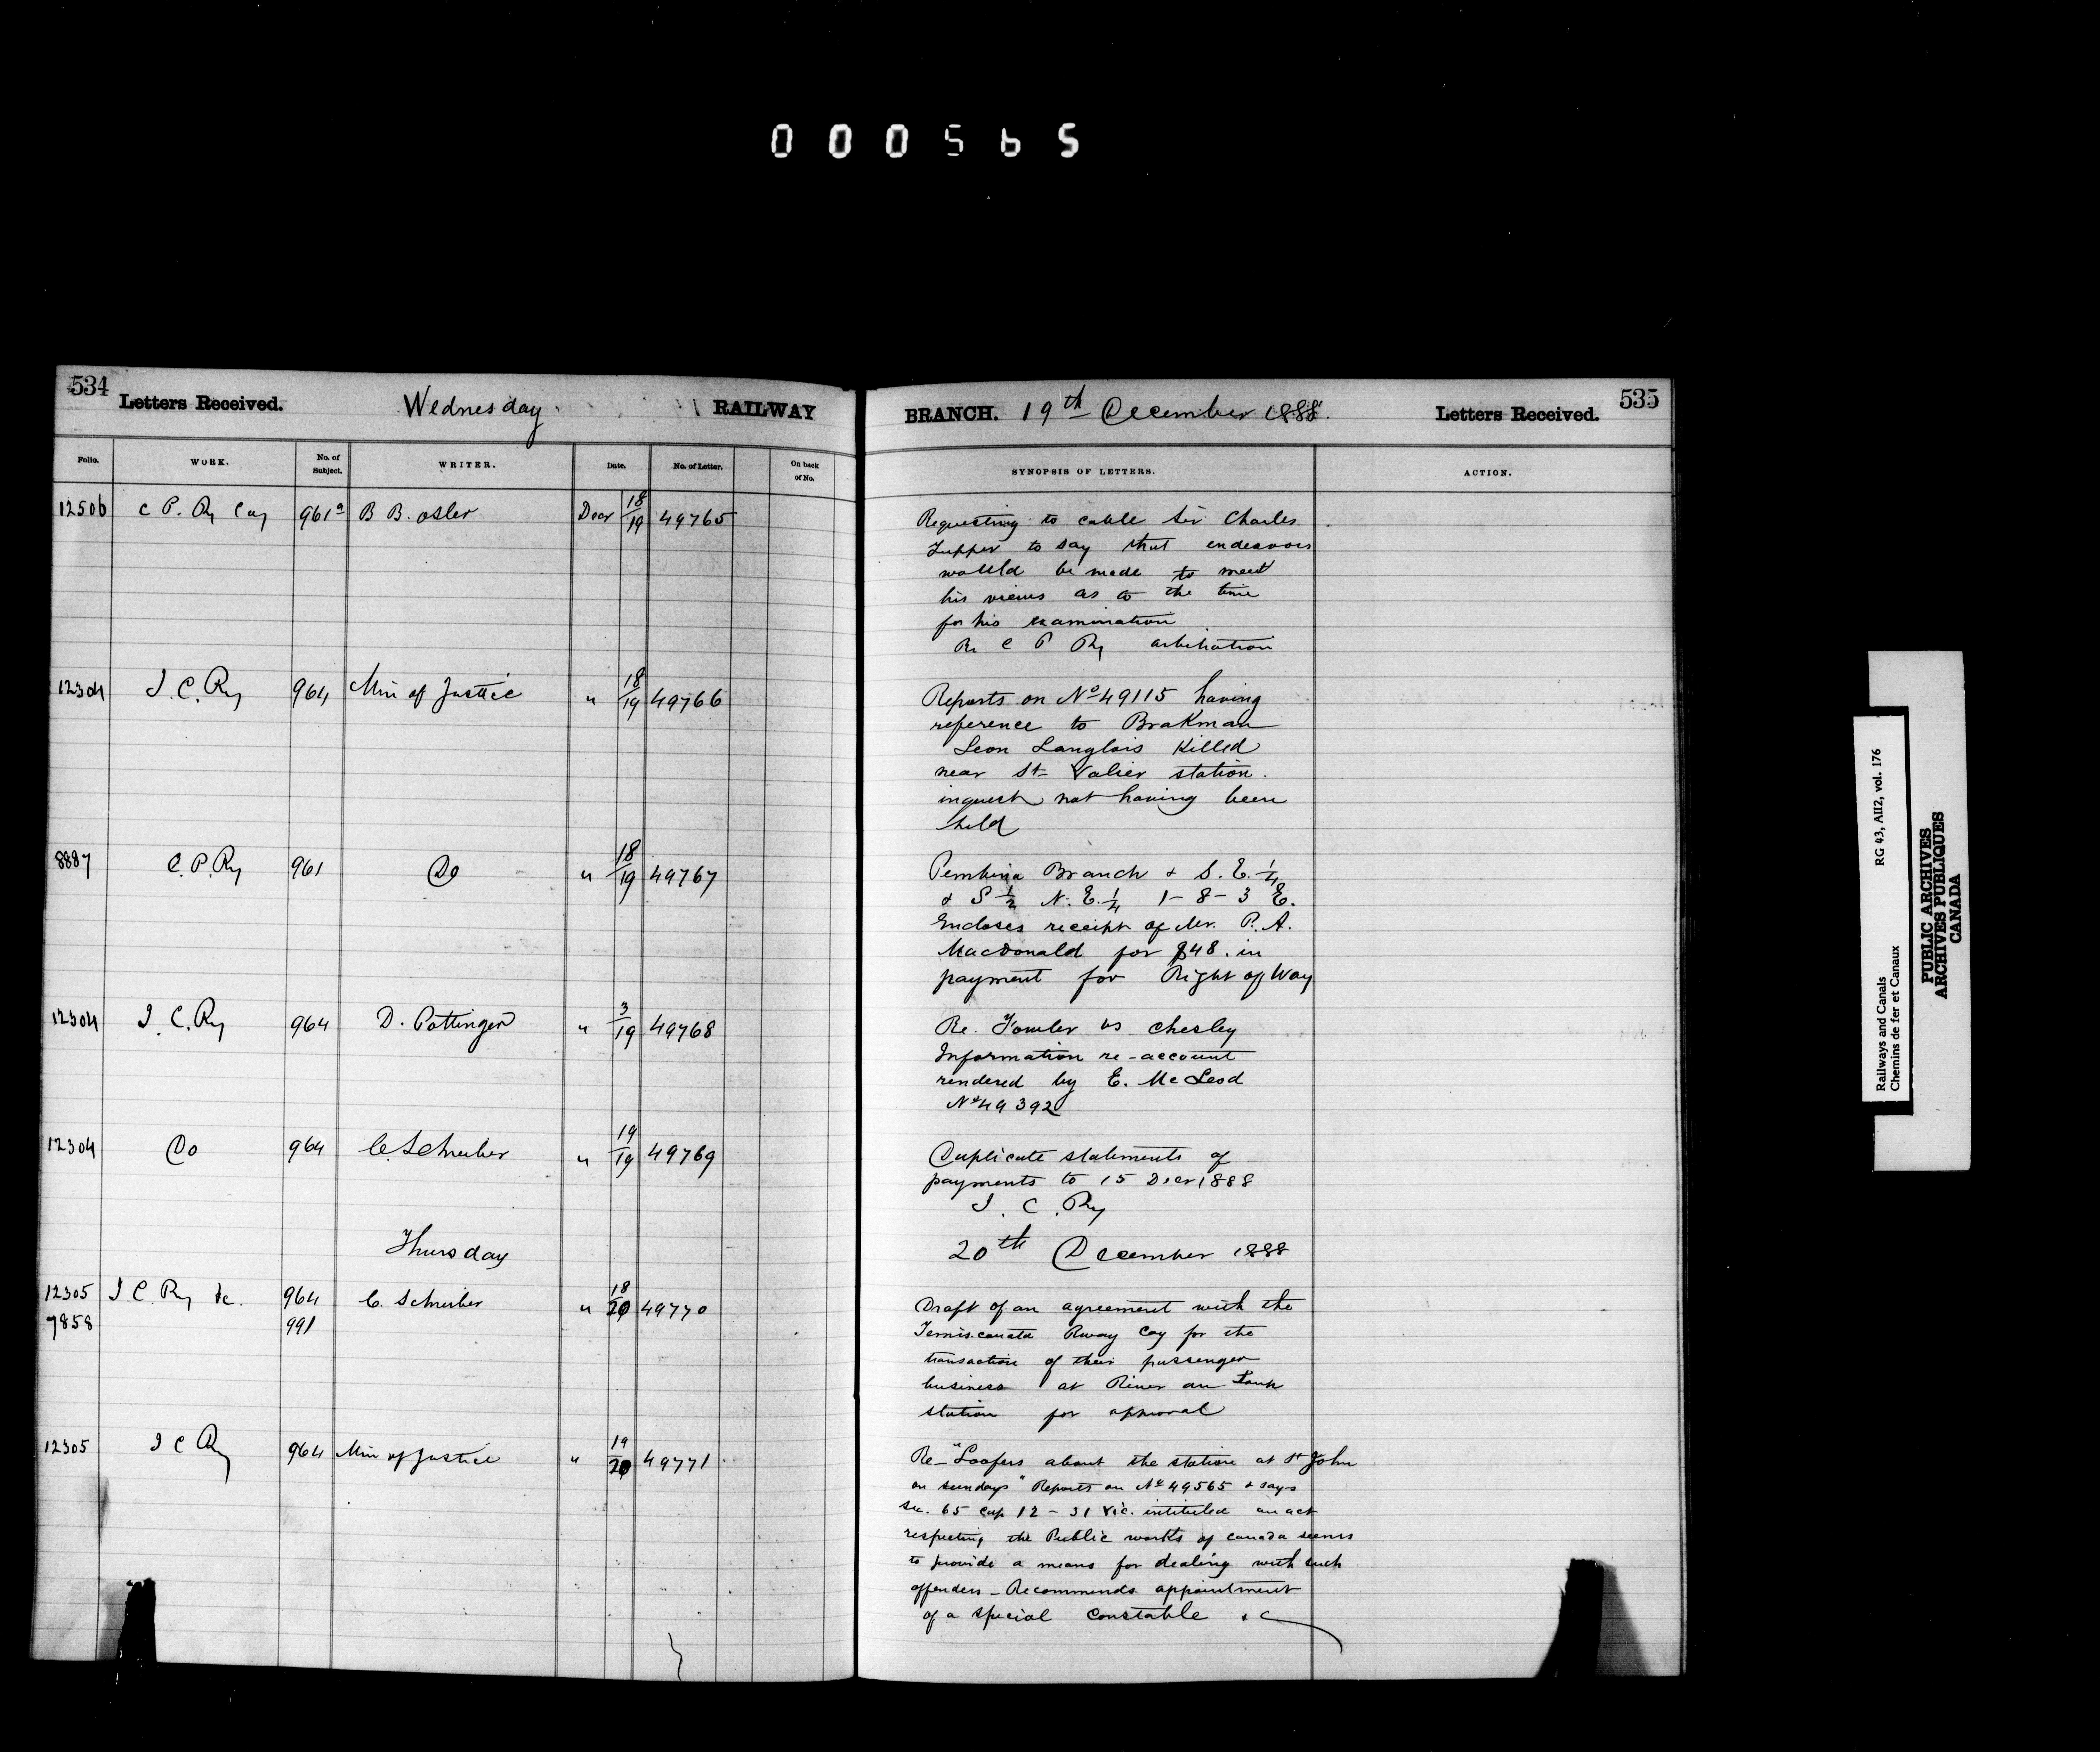 000565
534 Letters Received. Wednesday RAILWAY
Folio. WORK. No. of Subject. WRITER. Date. No. of Letter. On back of No.
12506 C P. Ry Coy 961a B B. Osler Decr 18/19 49765
12304 I. C. Ry 964 Min of Justice " 18/19 49766
8887 C. P. Ry 961 Do " 18/19 49767
12304 I. C. Ry 964 D. Pottinger " 3/19 49768
12304 Do 964 C. Schreiber " 19/19 49769
Thursday
12305 I C Ry &c. 964 C. Schreiber " 18/20 49770
7858 991
12305 I C Ry 964 Min of Justice " 19/20 49771
BRANCH. 19th December 1888. Letters Received. 535
SYNOPSIS OF LETTERS. ACTION.
Requesting to cable Sir Charles
Tupper to say that endeavors
would be made to meet
his views as to the time
for his examination
Re C P Ry arbitration
Reports on No 49115 having
reference to Brakman
Leon Langlois Killed
near St Valier station.
inquest not having been
held
Pembina Branch & S. E. 1/4
& S 1/2 N. E. 1/4 1-8-3 E.
Encloses receipt of Mr. P. A.
MacDonald for $48. in
payment for Right of Way
Re. Fowler vs Chesley
Information re-account
rendered by E. McLeod
No 49392
Duplicate statements of
payments to 15 Decr 1888
I. C. Ry
20th December 1888
Draft of an agreement with the
Temiscouata Rway Coy for the
transaction of their passenger
business at River du Loup
station for approval
Re-"Loafers about the station at St John
on sundays" Reports on No 49565 & says
Sec. 65 cap 12 - 31 Vic. intituled an act
respecting the Public works of Canada seems
to provide a means for dealing with such
offenders - Recommends appointment
of a special constable &c
Railways and Canals RG 43, AII2, vol. 176
Chemins de fer et Canaux
PUBLIC ARCHIVES
ARCHIVES PUBLIQUES
CANADA